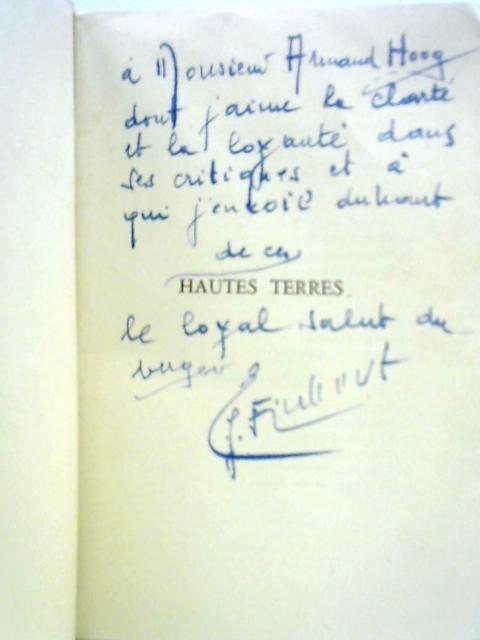 à Monsieur Armand Hoog
dont j'aime la clarté
et la loyauté dans
ses critiques et à
qui j'envoie du haut
de ces
HAUTES TERRES
le loyal salut du